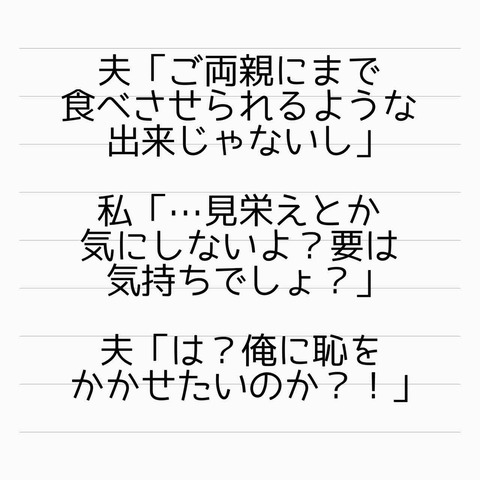 夫「ご両親にまで
食べさせられるような
出来じゃないし」
私「…見栄えとか
気にしないよ？要は
気持ちでしょ？」
夫「は？俺に恥を
かかせたいのか？！」